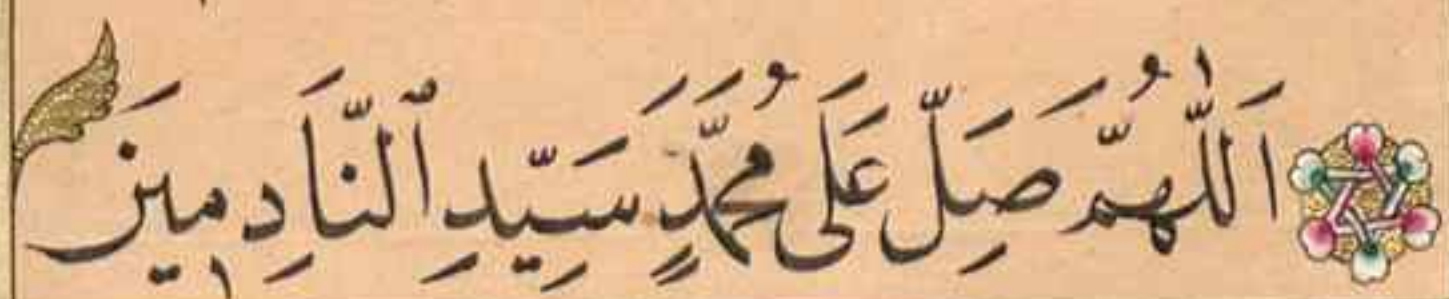 اَللّٰهُمَّ صَلِّ عَلَى مُحَمَّدٍ سَيِّدِ ٱلنَّادِمِينَ